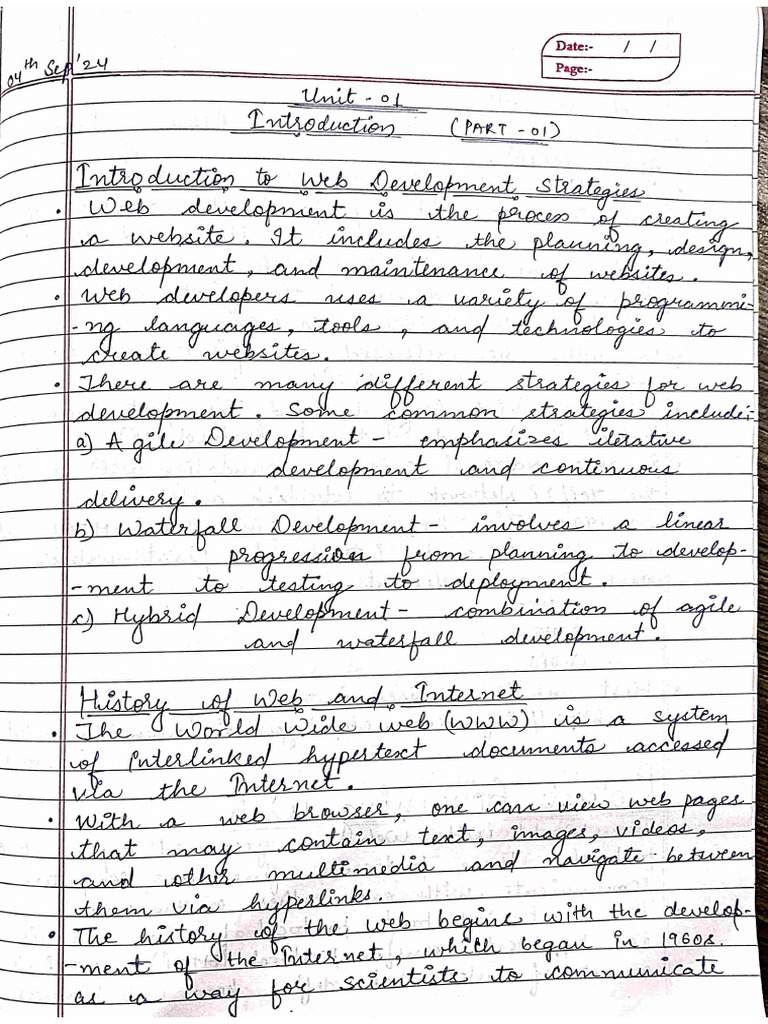 04th Sep'24
Date:- / /
Page:-
Unit - 01
Introduction (PART - 01)
Introduction to Web Development Strategies
• Web development is the process of creating
a website. It includes the planning, design,
development, and maintenance of websites.
• Web developers uses a variety of programmi-
-ng languages, tools, and technologies to
create websites.
• There are many different strategies for web
development. Some common strategies include:
a) Agile Development - emphasizes iterative
development and continuous
delivery.
b) Waterfall Development - involves a linear
progression from planning to develop-
-ment to testing to deployment.
c) Hybrid Development - combination of agile
and waterfall development.
History of Web and Internet
• The World Wide Web (WWW) is a system
of interlinked hypertext documents accessed
via the Internet.
• With a web browser, one can view web pages
that may contain text, images, videos,
and other multimedia and navigate between
them via hyperlinks
• The history of the web begins with the develop-
-ment of the Internet, which began in 1960s.
as a way for scientists to communicate